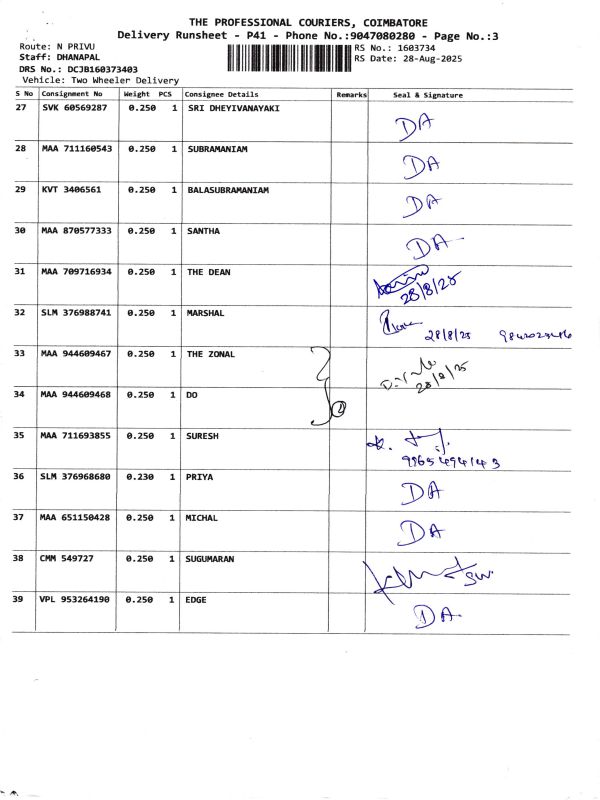 THE PROFESSIONAL COURIERS, COIMBATORE
Delivery Runsheet - P41 - Phone No.:9047080280 - Page No.:3
Route: N PRIVU
RS No.: 1603734
Staff: DHANAPAL
RS Date: 28-Aug-2025
DRS No.: DCJB160373403
Vehicle: Two Wheeler Delivery
S No Consignment No Weight PCS Consignee Details Remarks Seal & Signature
27 SVK 60569287 0.250 1 SRI DHEYIVANAYAKI DA
28 MAA 711160543 0.250 1 SUBRAMANIAM DA
29 KVT 3406561 0.250 1 BALASUBRAMANIAM DA
30 MAA 870577333 0.250 1 SANTHA DA
31 MAA 709716934 0.250 1 THE DEAN 28/8/25
32 SLM 376988741 0.250 1 MARSHAL 28/8/25
33 MAA 944609467 0.250 1 THE ZONAL 28/8/25
34 MAA 944609468 0.250 1 DO 2
35 MAA 711693855 0.250 1 SURESH
9965494143
36 SLM 376968680 0.230 1 PRIYA DA
37 MAA 651150428 0.250 1 MICHAL DA
38 CMM 549727 0.250 1 SUGUMARAN
39 VPL 953264190 0.250 1 EDGE DA